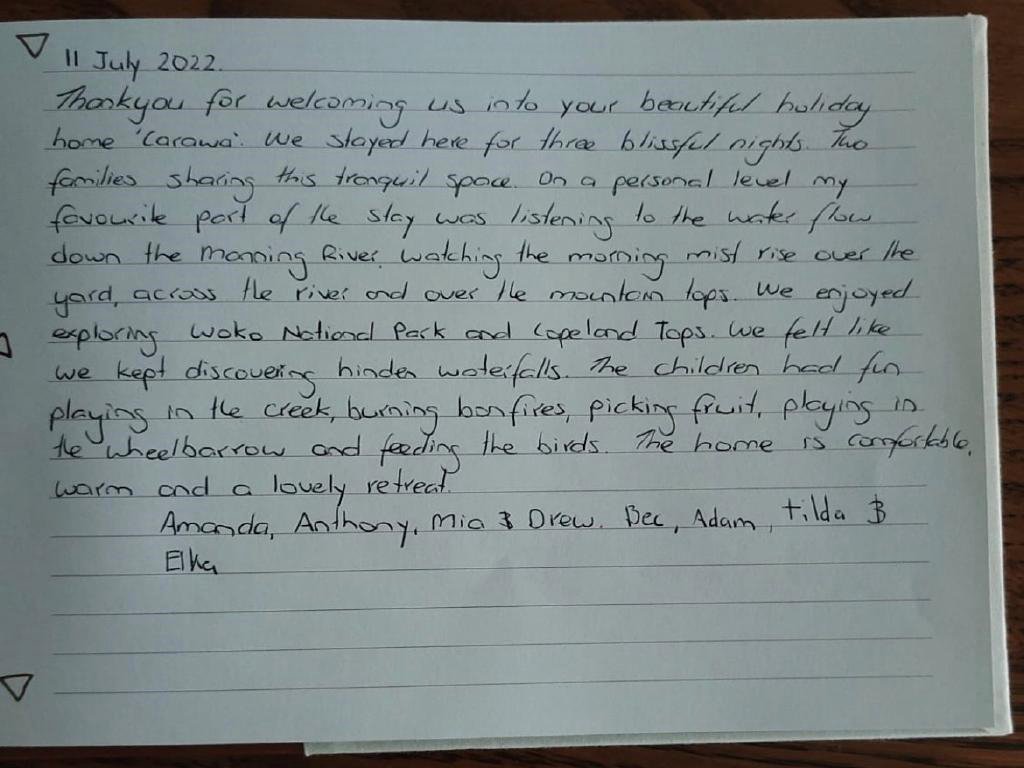 11 July 2022.
Thankyou for welcoming us into your beautiful holiday
home 'Carawa'. We stayed here for three blissful nights. Two
families sharing this tranquil space. On a personal level my
favourite part of the stay was listening to the water flow
down the Manning River, watching the morning mist rise over the
yard, across the river and over the mountain tops. We enjoyed
exploring Woko National Park and Copeland Tops. We felt like
we kept discovering hinden waterfalls. The children had fun
playing in the creek, burning bonfires, picking fruit, playing in
the wheelbarrow and feeding the birds. The home is comfortable,
warm and a lovely retreat.
Amanda, Anthony, Mia & Drew. Bec, Adam, Tilda &
Elka